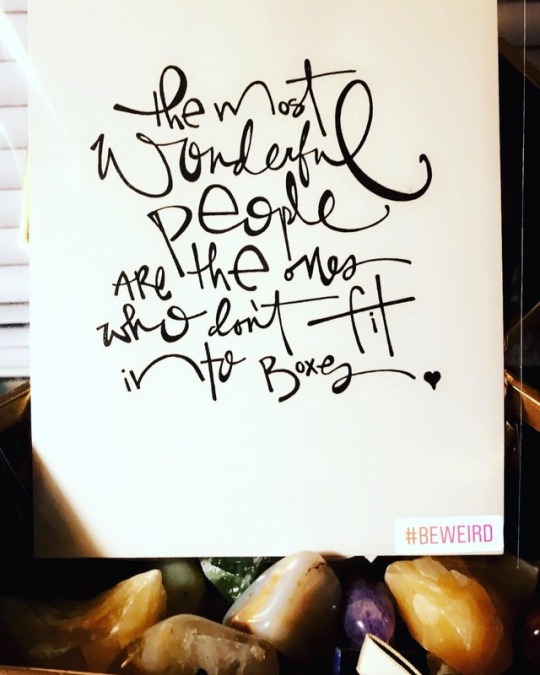 the most
Wonderful
people
ARe the ones
who don't fit
into Boxes
#BEWEIRD